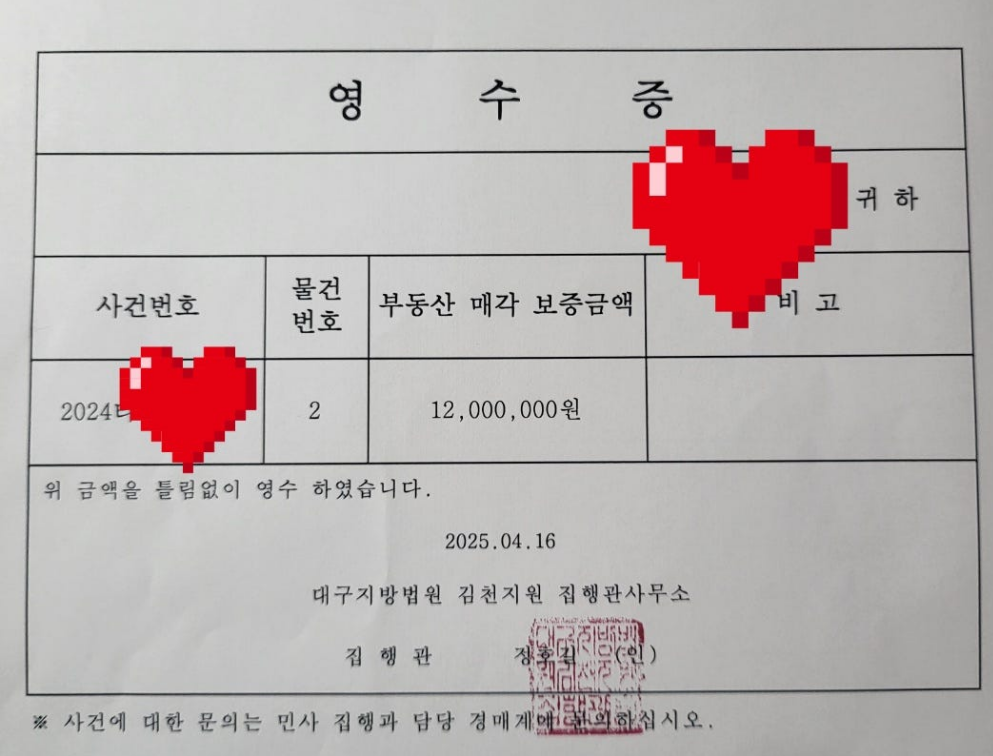 영 수 증
귀 하
사건번호
물건
번호
부동산 매각 보증금액
비 고
2024타
2
12,000,000원
위 금액을 틀림없이 영수 하였습니다.
2025.04.16
대구지방법원 김천지원 집행관사무소
집 행 관 정호길 (인)
※ 사건에 대한 문의는 민사 집행과 담당 경매계에 문의하십시오.